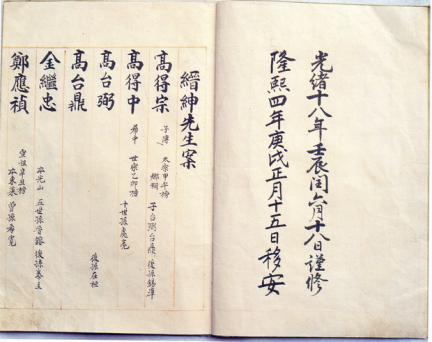 光緒十八年壬辰閏六月十八日謹修
隆熙四年庚戌正月十五日移安
縉紳先生案
高得宗 子溥 太宗甲午榜 鄉賢 子台弼台鼎 後孫錫淳
高得中 希中 世宗乙卯榜 十世孫處亮
高台弼
高台鼎 後孫在極
金繼忠 本光山 五世孫 後孫
鄭應禎 宣祖辛丑榜 本東萊 曾孫希寬